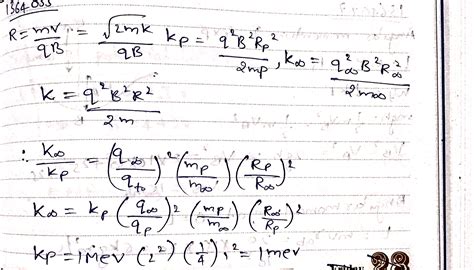 1364 033
R = mv/qB = √2mk/qB kp = q²B²Rp²/2mp , k∞ = q∞²B²R∞²/2m∞
k = q²B²R²/2m
∴ k∞/kp = (q∞/qto)² (mp/m∞) (Rp/R∞)²
k∞ = kp (q∞/qp)² (mp/m∞) (R∞/Rp)²
kp = 1Mev (2²) (1/4), ² = 1mev
28